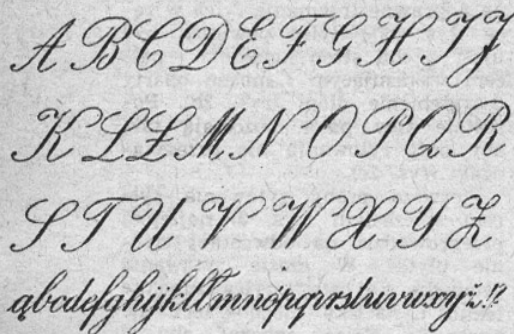 A B C D E F G H I J
K L Ł M N O P Q R
S T U V W X Y Z
ąbcdefghijklłmnópqrstuvwxyż!?